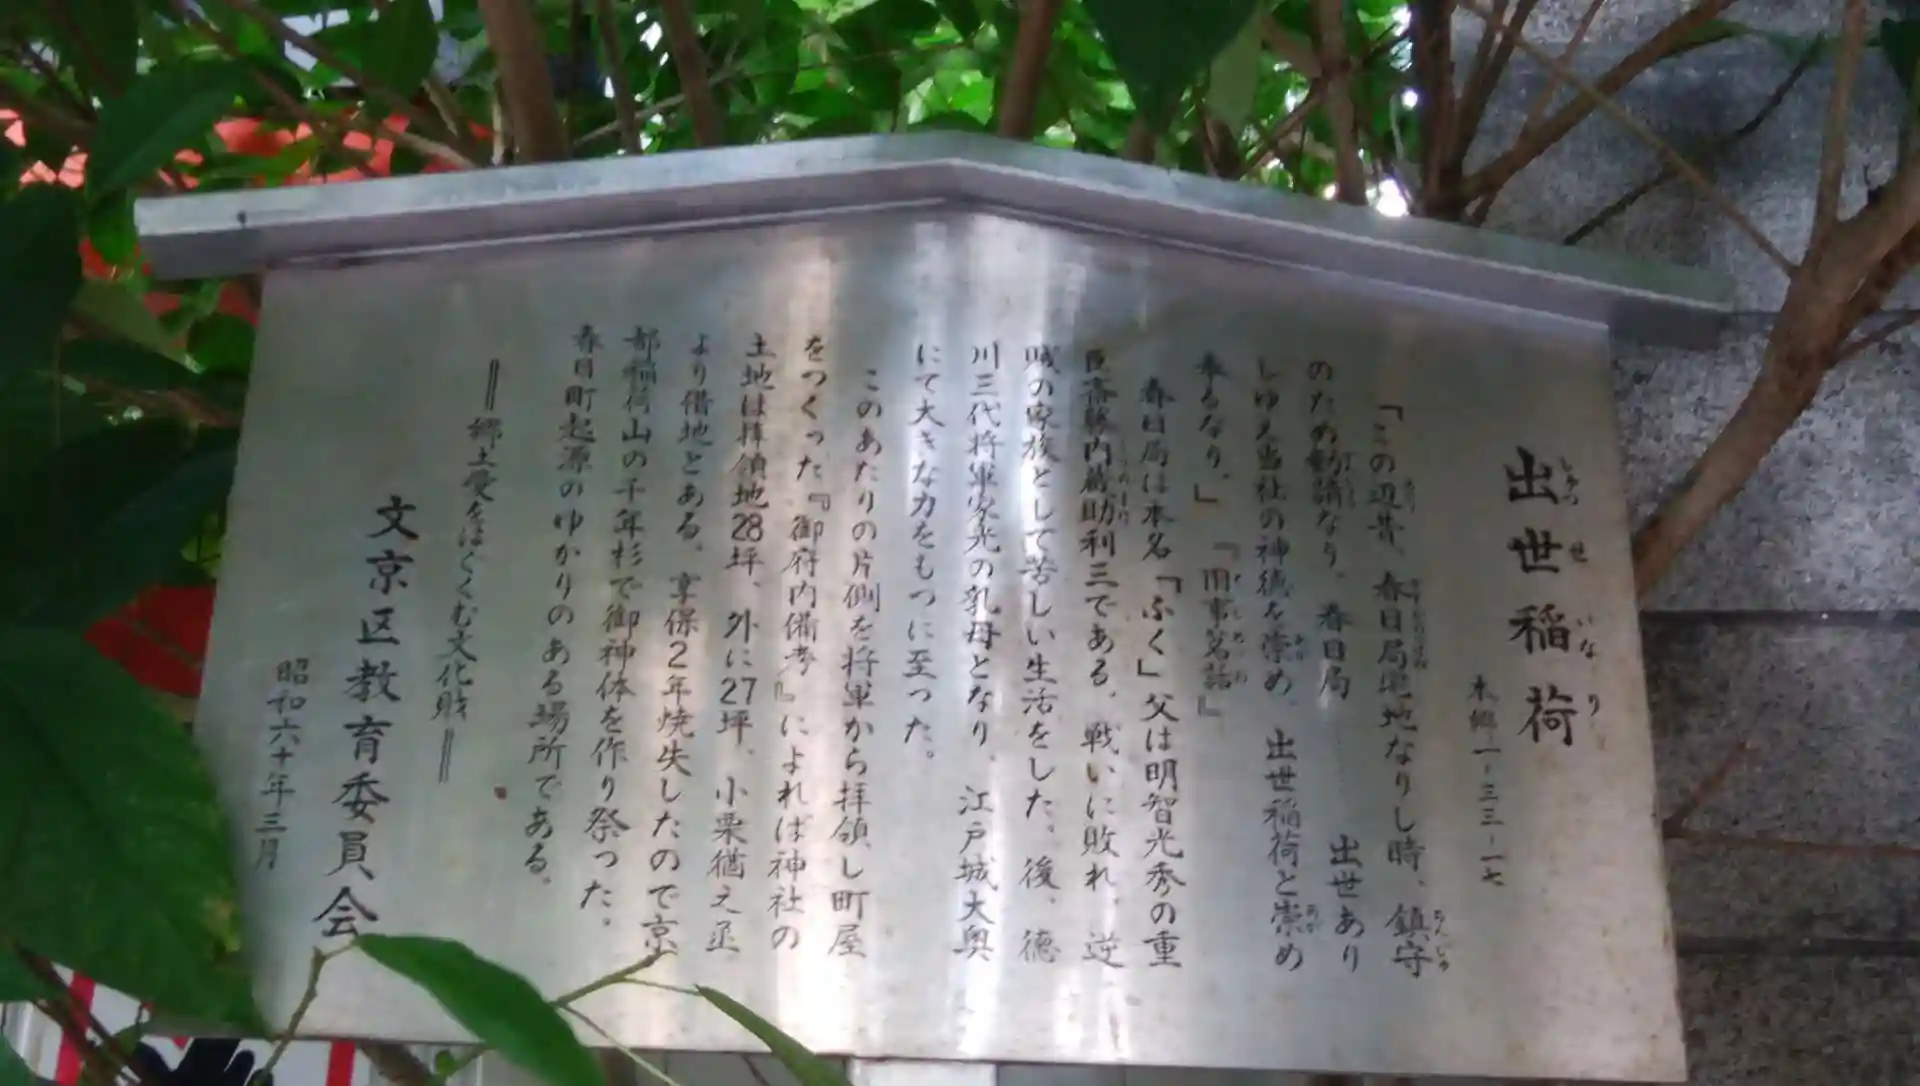 出世稲荷
しゅっせいなり
本郷一-三三-一七
「この辺昔、春日局宅地なりし時、鎮守
のため勧請なり、春日局 出世あり
しゆえ当社の神徳を崇め、出世稲荷と崇め
奉るなり。」 『旧事茗話』
春日局は本名「ふく」父は明智光秀の重
臣斎藤内蔵助利三である。戦いに敗れ、逆
賊の家族として苦しい生活をした。後、徳
川三代将軍家光の乳母となり、江戸城大奥
にて大きな力をもつに至った。
このあたりの片側を将軍から拝領し町屋
をつくった『御府内備考』によれば神社の
土地は拝領地28坪、外に27坪、小栗猶之丞
より借地とある。享保2年焼失したので京
都稲荷山の千年杉で御神体を作り祭った。
春日町起源のゆかりのある場所である。
＝郷土愛をはぐくむ文化財＝
文京区教育委員会
昭和六十年三月